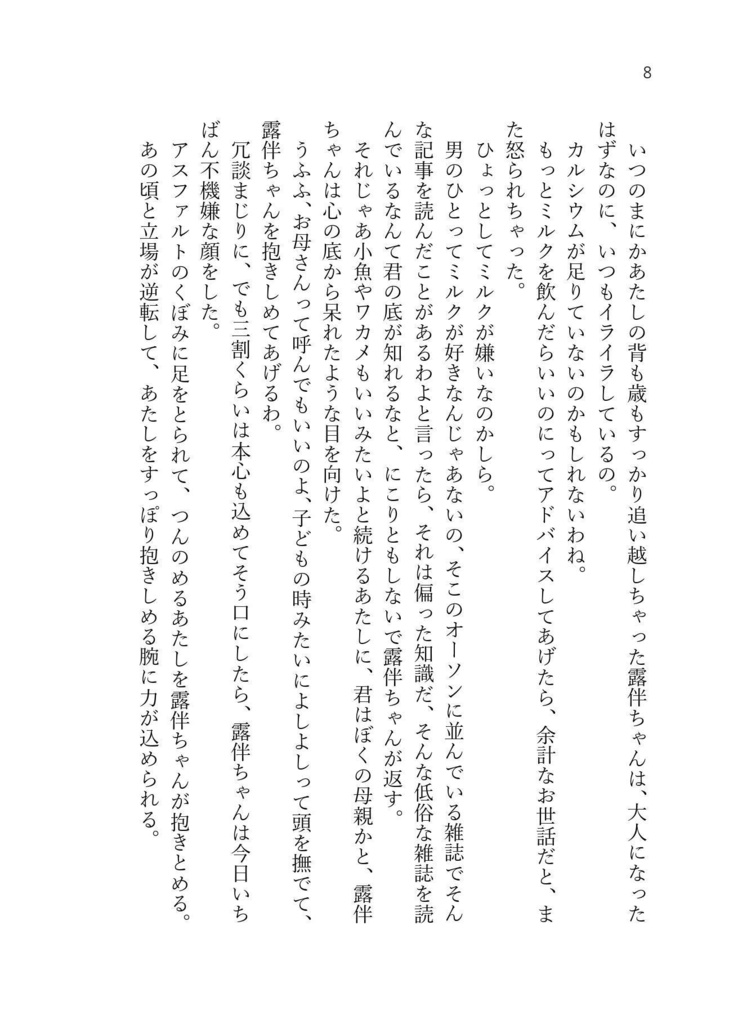 8
いつのまにかあたしの背も歳もすっかり追い越しちゃった露伴ちゃんは、大人になった
はずなのに、いつもイライラしているの。
カルシウムが足りていないのかもしれないわね。
もっとミルクを飲んだらいいのにってアドバイスしてあげたら、余計なお世話だと、ま
た怒られちゃった。
ひょっとしてミルクが嫌いなのかしら。
男のひとってミルクが好きなんじゃあないの、そこのオーソンに並んでいる雑誌でそん
な記事を読んだことがあるわよと言ったら、それは偏った知識だ、そんな低俗な雑誌を読
んでいるなんて君の底が知れるなと、にこりともしないで露伴ちゃんが返す。
それじゃあ小魚やワカメもいいみたいよと続けるあたしに、君はぼくの母親かと、露伴
ちゃんは心の底から呆れたような目を向けた。
うふふ、お母さんって呼んでもいいのよ、子どもの時みたいによしよしって頭を撫でて、
露伴ちゃんを抱きしめてあげるわ。
冗談まじりに、でも三割くらいは本心も込めてそう口にしたら、露伴ちゃんは今日いち
ばん不機嫌な顔をした。
アスファルトのくぼみに足をとられて、つんのめるあたしを露伴ちゃんが抱きとめる。
あの頃と立場が逆転して、あたしをすっぽり抱きしめる腕に力が込められる。